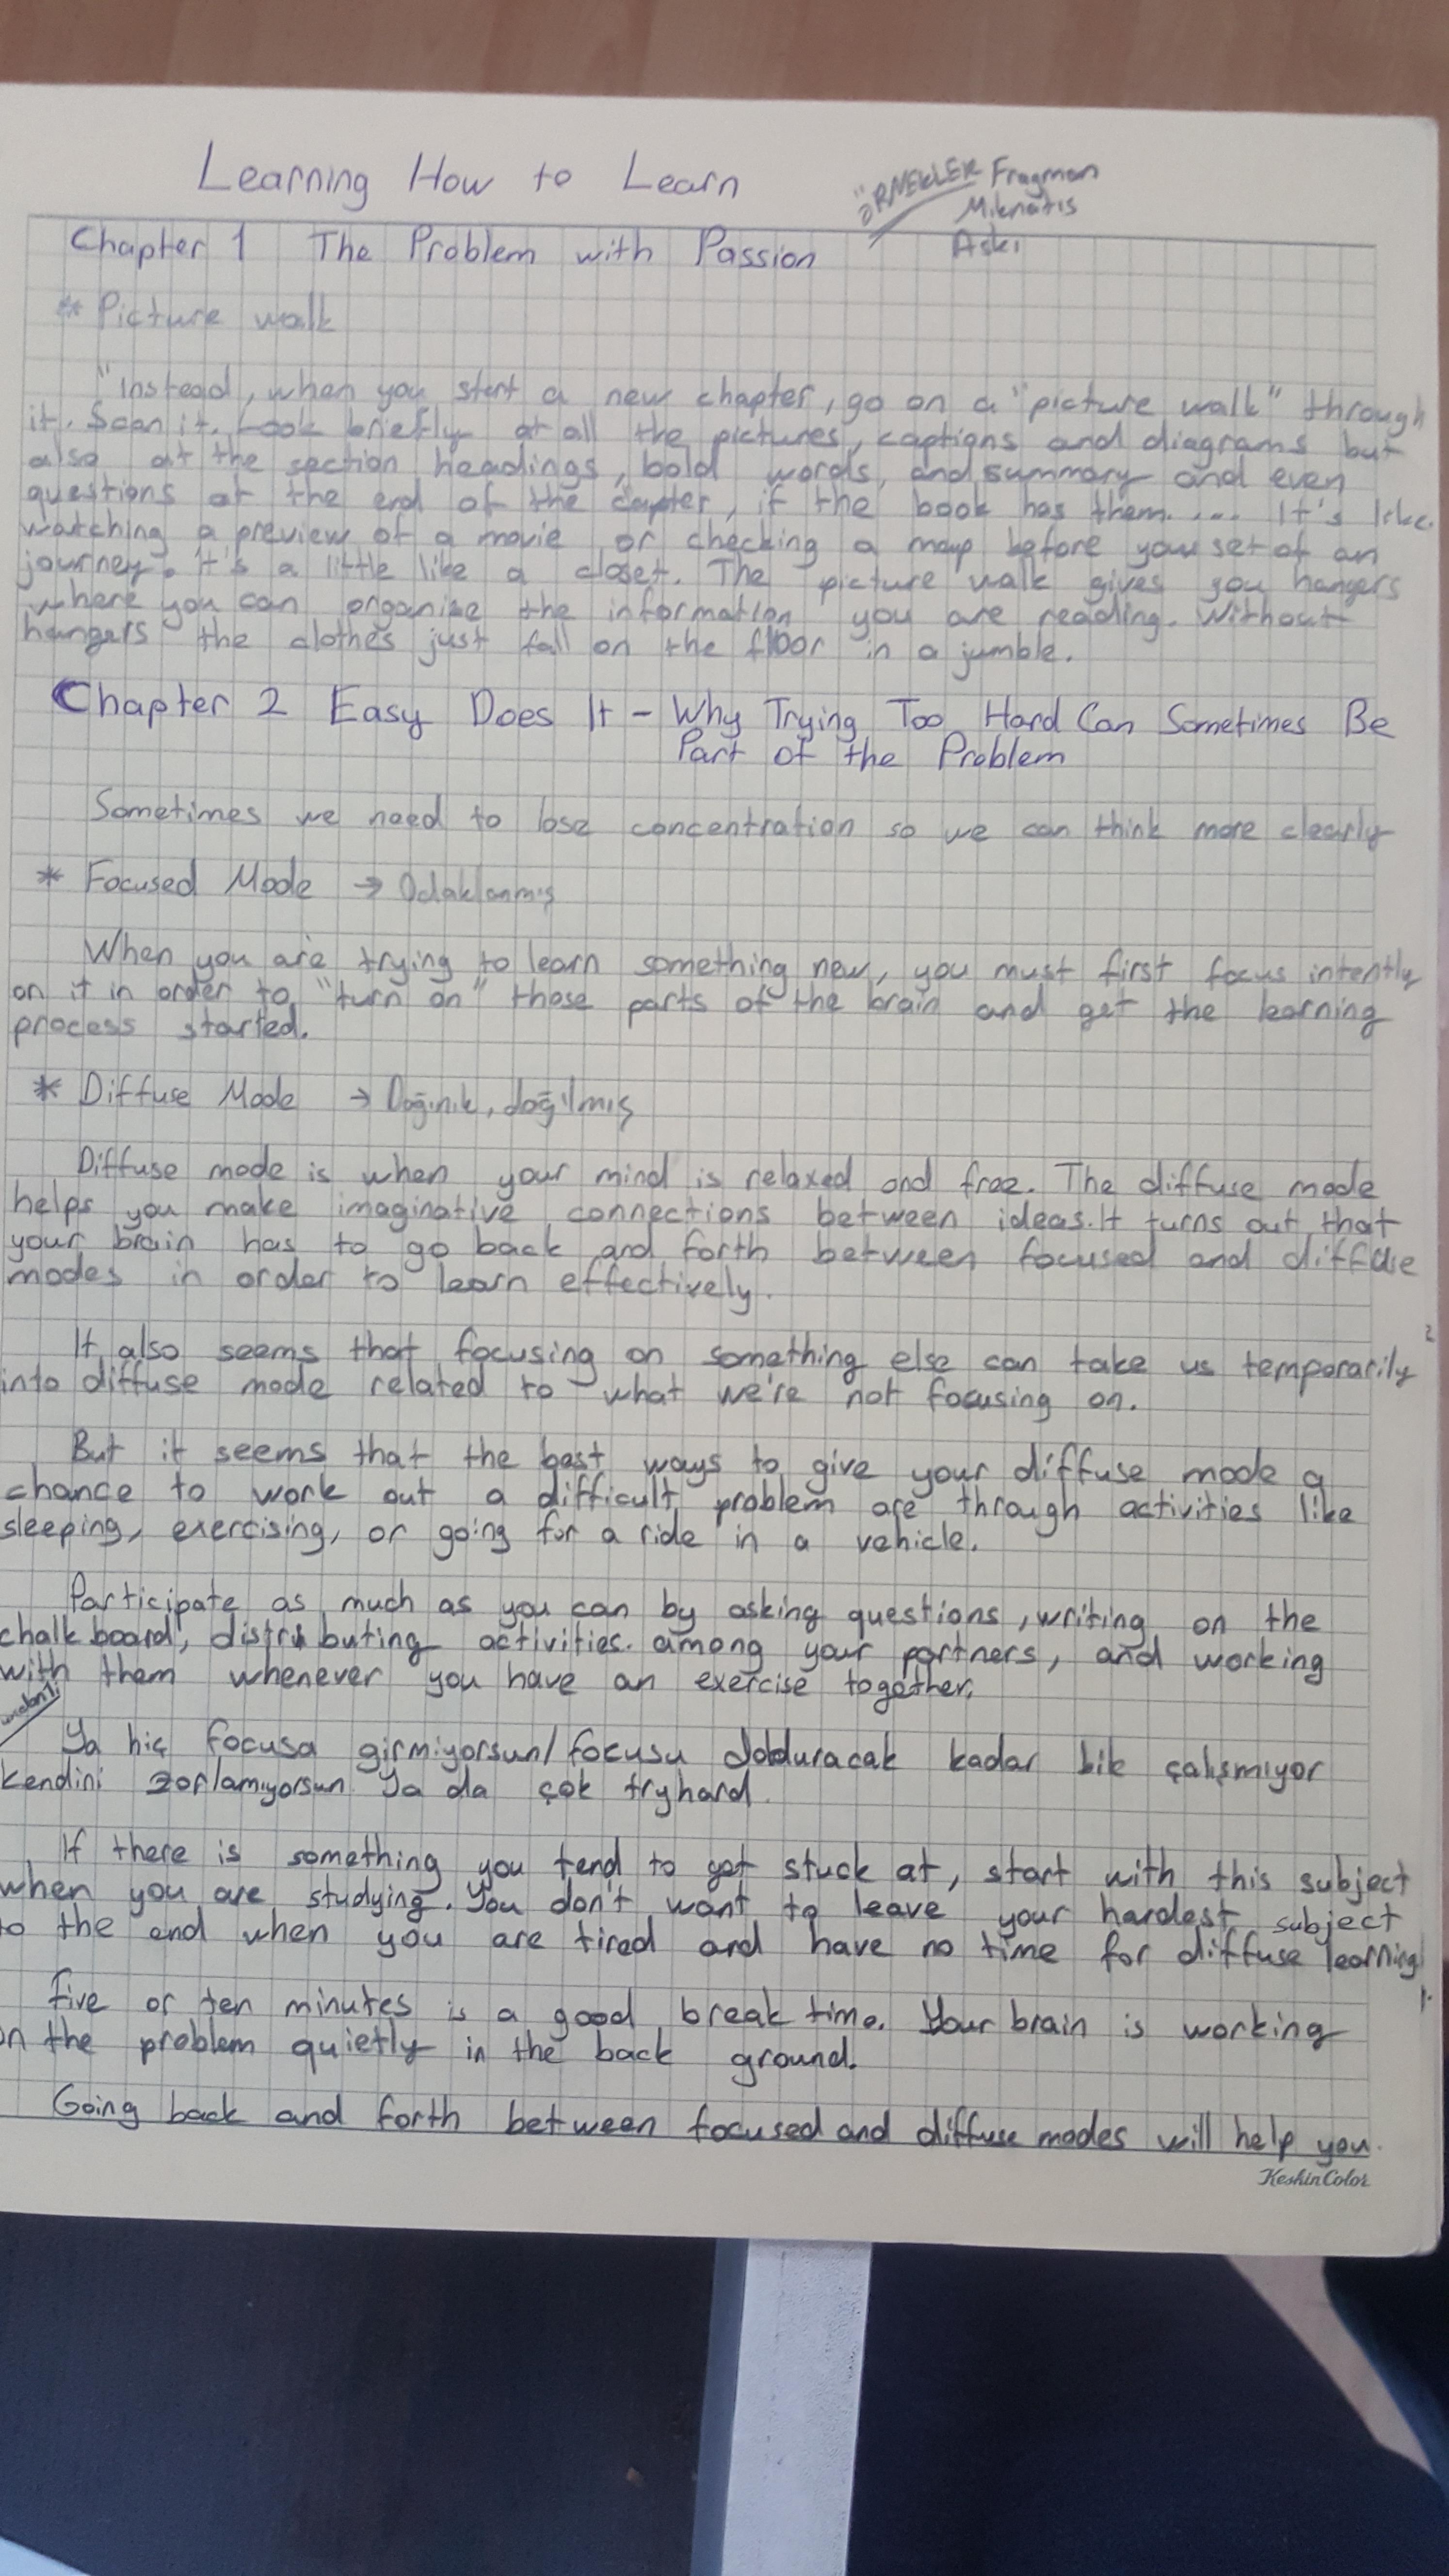 Learning How to Learn
ÖRNEKLER Fragman
Mıknatıs
Askı
Chapter 1 The Problem with Passion
* Picture walk
"Instead, when you start a new chapter, go on a "picture walk" through
it. Scan it. Look briefly at all the pictures, captions and diagrams but
also at the section headings, bold words, and summary and even
questions at the end of the capter, if the book has them. ... It's like
watching a preview of a movie or checking a map before you set of an
journey. It's a little like a closet. The picture walk gives you hangers
where you can organize the information you are reading. Without
hangers the clothes just fall on the floor in a jumble.
Chapter 2 Easy Does It - Why Trying Too Hard Can Sometimes Be
Part of the Problem
Sometimes we need to lose concentration so we can think more clearly
* Focused Mode → Odaklanmış
When you are trying to learn something new, you must first focus intently
on it in order to "turn on" those parts of the brain and get the learning
process started.
* Diffuse Mode → Dağınık, dağılmış
Diffuse mode is when your mind is relaxed and free. The diffuse mode
helps you make imaginative connections between ideas. It turns out that
your brain has to go back and forth between focused and diffuse
modes in order to learn effectively.
It also seems that focusing on something else can take us temporarily
into diffuse mode related to what we're not focusing on.
But it seems that the best ways to give your diffuse mode a
chance to work out a difficult problem are through activities like
sleeping, exercising, or going for a ride in a vehicle.
Participate as much as you can by asking questions, writing on the
chalk board, distributing activities among your partners, and working
with them whenever you have an exercise together.
Ya hiç focusa girmiyorsun/focusu dolduracak kadar bile çalışmıyor
kendini zorlamıyorsun Ya da çok tryhard.
If there is something you tend to get stuck at, start with this subject
when you are studying. You don't want to leave your hardest subject
to the end when you are tired and have no time for diffuse learning
Five or ten minutes is a good break time. Your brain is working
on the problem quietly in the back ground.
Going back and forth between focused and diffuse modes will help you.
KeskinColor